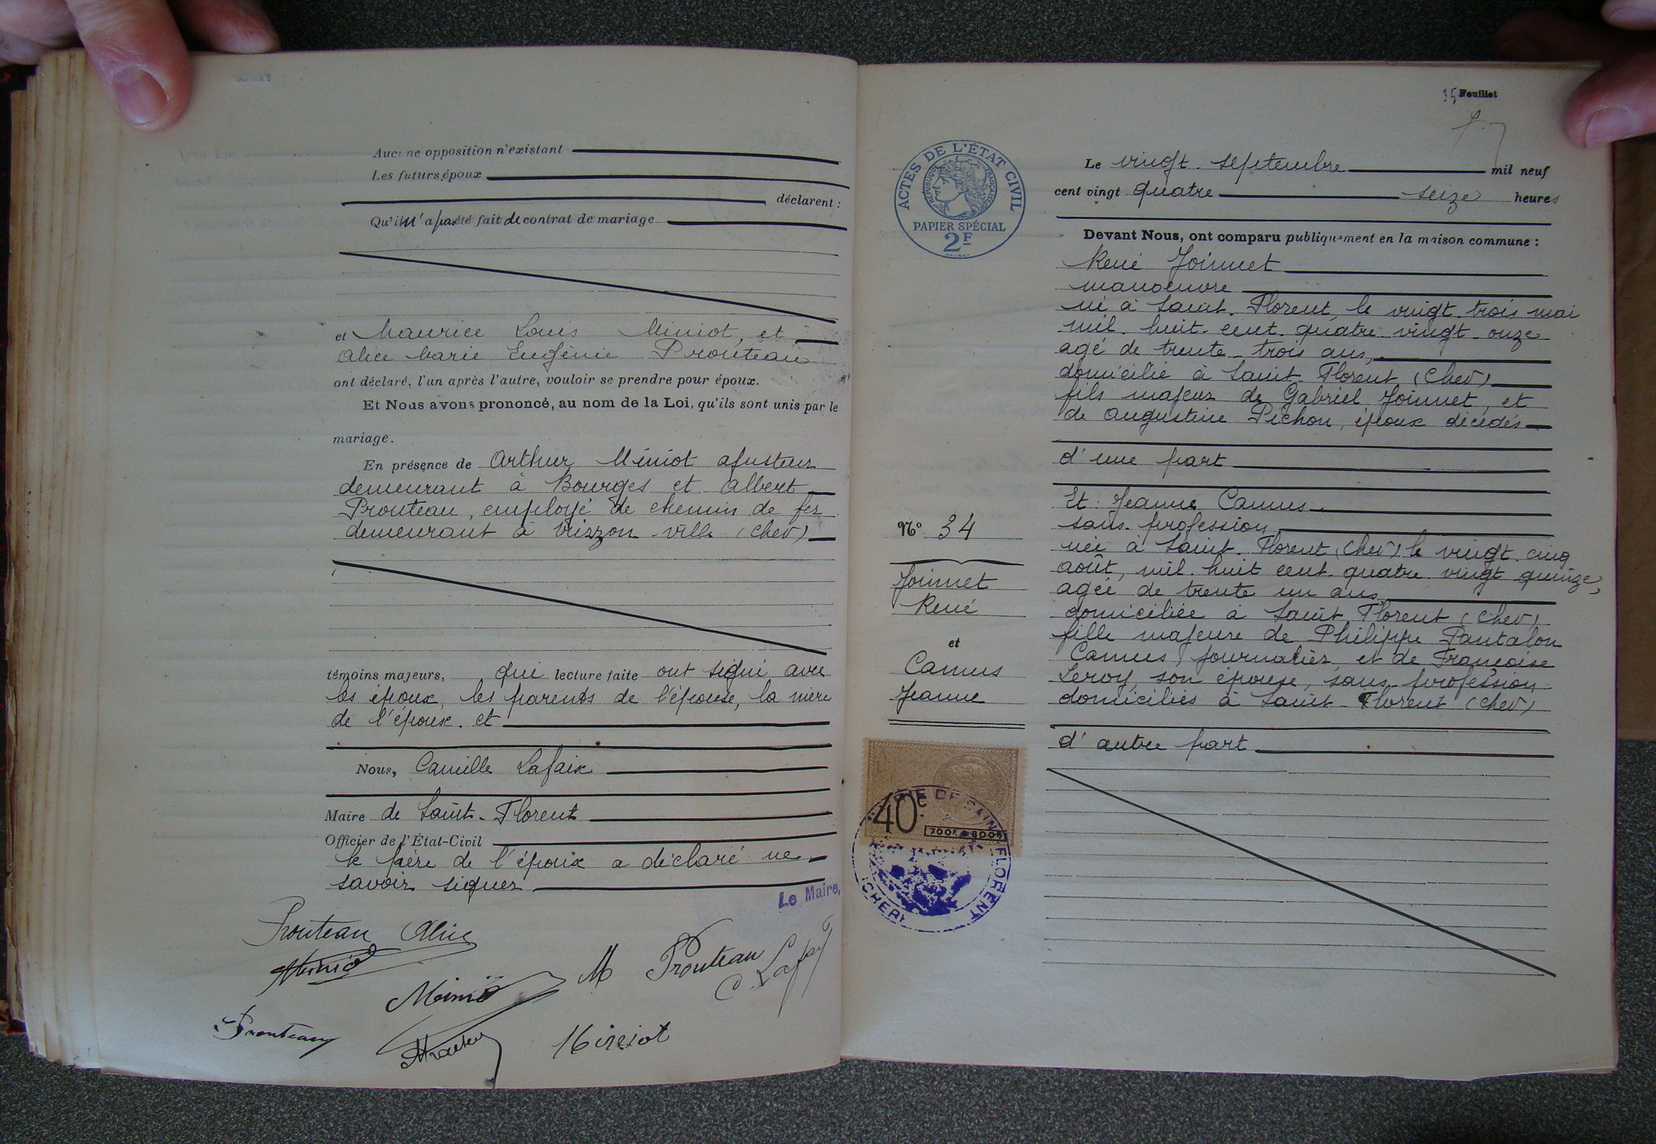 Aucune opposition n'existant
Les futurs époux
déclarent :
Qu'il n'a pas été fait de contrat de mariage
et Maurice Louis Miniot, et
Alice Marie Eugénie Prouteau
ont déclaré, l'un après l'autre, vouloir se prendre pour époux.
Et Nous avons prononcé, au nom de la Loi, qu'ils sont unis par le
mariage.
En présence de Arthur Miniot ajusteur
demeurant à Bourges et Albert
Prouteau, employé de chemin de fer
demeurant à Vierzon-ville (Cher)
témoins majeurs, qui lecture faite ont signé avec
les époux, les parents de l'épouse, la mère
de l'époux et
Nous, Camille Lafaix
Maire de Saint-Florent
Officier de l'État-Civil
le père de l'époux a déclaré ne
savoir signer
Le Maire,
Prouteau Alice
Miniot
M Prouteau
C. Lafaix
Prouteau
Miniot
35 Feuillet
ACTES DE L'ÉTAT CIVIL
PAPIER SPÉCIAL
2F
Le vingt septembre mil neuf
cent vingt quatre seize heures
Devant Nous, ont comparu publiquement en la maison commune :
René Joinnet
manoeuvre
né à Saint-Florent, le vingt trois mai
mil huit cent quatre vingt onze
agé de trente-trois ans,
domicilié à Saint-Florent (Cher)
fils majeur de Gabriel Joinnet, et
de Augustine Pichon, époux décédés
d'une part
Et : Jeanne Camus
sans profession
née à Saint-Florent (Cher) le vingt cinq
août, mil huit cent quatre vingt quinze,
agée de trente un ans
domiciliée à Saint Florent (Cher)
fille majeure de Philippe Pantalon
Camus, journalier, et de Françoise
Leroy, son épouse, sans profession
domiciliés à Saint-Florent (Cher)
d'autre part
N° 34
Joinnet
René
et
Camus
Jeanne
40c
MAIRIE DE SAINT FLORENT
(CHER)